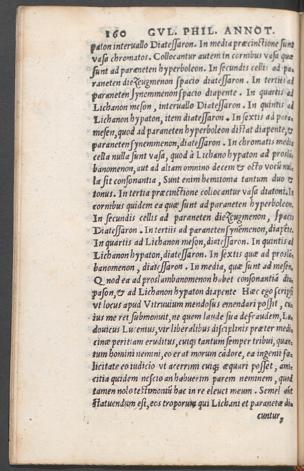 160 GVL. PHIL. ANNOT.
paton interuallo Diatessaron. In media præcinctione sunt
vasa chromatos. Collocantur autem in cornibus vasa quæ
sunt ad paraneten hyperboleon. In secundis cellis ad pa-
raneten diezeugmenon spacio diatessaron. In tertiis ad
paraneten synemmenon spacio diapente. In quartis ad
Lichanon meson, interuallo Diatessaron. In quintis ad
Lichanon hypaton, item diatessaron. In sextis ad para-
mesen, quod ad paraneten hyperboleon distat diapente, &
paraneten synemmenon, diatessaron. In chromatis media
cella nulla sunt vasa, quod à Lichano hypaton ad proslā-
banomenon, aut ad aliam omnino decem & octo vocū nul-
la sit consonantia, Sunt enim benitona tantum duo &
tonus. In tertia præcinctione collocantur vasa diatoni. In
cornibus quidem ea quæ sunt ad paraneten hyperboleon.
In secundis cellis ad paraneten diezeugmenon, spacio
Diatessaron. In tertiis ad paraneten synemenon, diapēte.
In quartis ad Lichanon meson, diatessaron. In quintis ad
Lichanon hypaton, diatessaron. In sextis quæ ad proslā-
banomenon, diatessaron. In media, quæ sunt ad mesen,
Quod ea ad proslambanomenon habet consonantiā dia-
pason, & ad Lichanon hypaton diapente Hæc ego scripsi
vt locus apud Vitruuium mendosus emendari possit, cu-
ius me ret submonuit, ne quem laude sua defraudem, Lu-
douicus Lucenius, vir liberalibus disciplinis præter medi-
cinæ peritiam eruditus, cuiq; tantum semper tribui, quan-
tum homini nemini, eo erat morum cādore, ea ingenii fœ-
licitate eo iudicio vt acerrimi cuiq; æquari posset, ami-
citia quidem nescio an habuerim parem neminem, quod
tamen nolo testimoniū hac in re eleuet meum. Semel aut
statuendum est, eos troporum qui Lichani et paranetæ di-
cuntur,